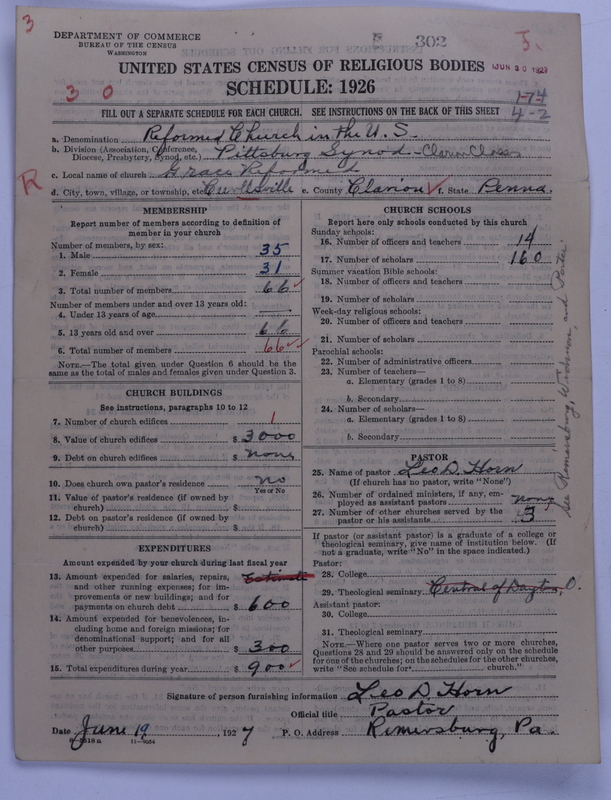 3
DEPARTMENT OF COMMERCE
BUREAU OF THE CENSUS
WASHINGTON
302
JUN 30 1927
UNITED STATES CENSUS OF RELIGIOUS BODIES
SCHEDULE: 1926
3 0
174
4-2
FILL OUT A SEPARATE SCHEDULE FOR EACH CHURCH. SEE INSTRUCTIONS ON THE BACK OF THIS SHEET
a. Denomination Reformed Church in the U.S.
b. Division (Association, Conference, Diocese, Presbytery, Synod, etc.) Pittsburg Synod - Clarion Classis
c. Local name of church Grace Reformed
R
d. City, town, village, or township, etc. Curllsville e. County Clarion f. State Penna.
MEMBERSHIP
Report number of members according to definition of member in your church
Number of members, by sex:
1. Male 35
2. Female 31
3. Total number of members 66
Number of members under and over 13 years old:
4. Under 13 years of age
5. 13 years old and over 66
6. Total number of members 66
NOTE.—The total given under Question 6 should be the same as the total of males and females given under Question 3.
CHURCH BUILDINGS
See instructions, paragraphs 10 to 12
7. Number of church edifices 1
8. Value of church edifices $ 3000
9. Debt on church edifices $ none
10. Does church own pastor's residence? no
Yes or No
11. Value of pastor's residence (if owned by church) $
12. Debt on pastor's residence (if owned by church) $
EXPENDITURES
Amount expended by your church during last fiscal year
Estimate
13. Amount expended for salaries, repairs, and other running expenses; for improvements or new buildings; and for payments on church debt $ 600
14. Amount expended for benevolences, including home and foreign missions; for denominational support; and for all other purposes $ 300
15. Total expenditures during year $ 900
CHURCH SCHOOLS
Report here only schools conducted by this church
Sunday schools:
16. Number of officers and teachers 14
17. Number of scholars 160
Summer vacation Bible schools:
18. Number of officers and teachers
19. Number of scholars
Week-day religious schools:
20. Number of officers and teachers
21. Number of scholars
Parochial schools:
22. Number of administrative officers
23. Number of teachers—
a. Elementary (grades 1 to 8)
b. Secondary
24. Number of scholars—
a. Elementary (grades 1 to 8)
b. Secondary
PASTOR
25. Name of pastor Leo D. Horn
(If church has no pastor, write "None")
26. Number of ordained ministers, if any, employed as assistant pastors none
27. Number of other churches served by the pastor or his assistants 3
If pastor (or assistant pastor) is a graduate of a college or theological seminary, give name of institution below. (If not a graduate, write "No" in the space indicated.)
Pastor:
28. College
29. Theological seminary Central of Dayton, O.
Assistant pastor:
30. College
31. Theological seminary
NOTE.—Where one pastor serves two or more churches, Questions 28 and 29 should be answered only on the schedule for one of the churches; on the schedules for the other churches, write "See schedule for church."
See Rimersburg, and
Signature of person furnishing information Leo D. Horn
Official title Pastor
Date June 19, 1927 P. O. Address Rimersburg, Pa.
11—9054